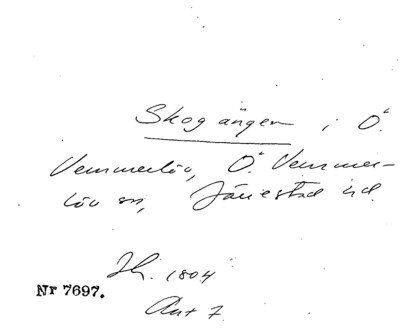 Skogängen i Ö.
Vemmerlöv, Ö. Vemmer-
löv sn, Järrestad hd.
Jh. 1804
Nr 7697.
Akt 7